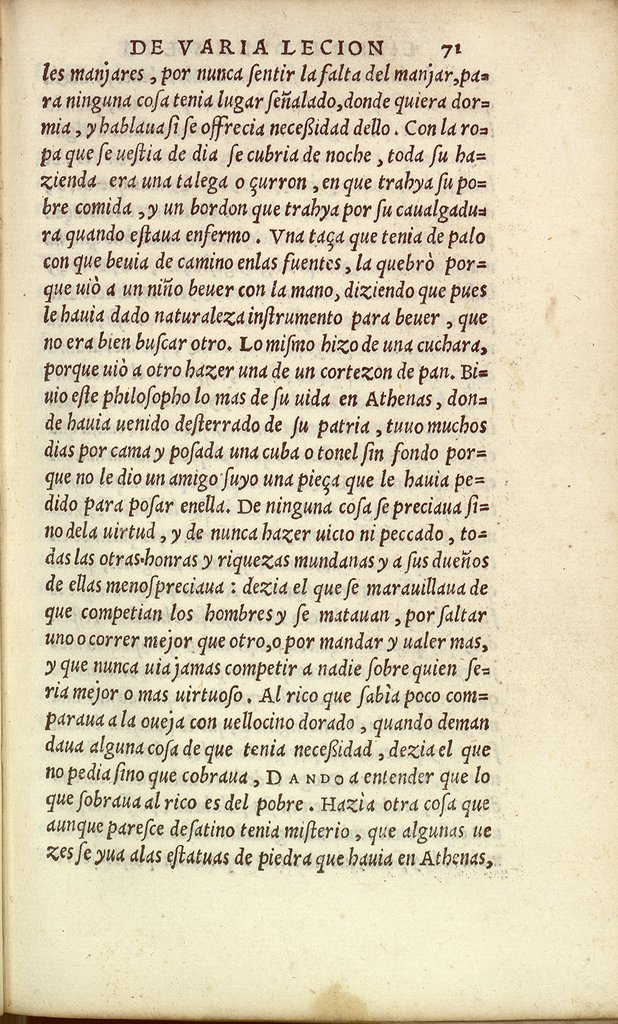 DE VARIA LECION 71
les manjares, por nunca ſentir la falta del manjar, pa=
ra ninguna coſa tenia lugar ſeñalado, donde quiera dor=
mia, y hablaua ſi ſe offrecia neceßidad dello. Con la ro=
pa que ſe ueſtia de dia ſe cubria de noche, toda ſu ha=
zienda era una talega o çurron, en que trahya ſu po=
bre comida, y un bordon que trahya por ſu caualgadu=
ra quando eſtaua enfermo. Vna taça que tenia de palo
con que beuia de camino enlas fuentes, la quebrò por=
que uiò a un niño beuer con la mano, diziendo que pues
le hauia dado naturaleza inſtrumento para beuer, que
no era bien buſcar otro. Lo miſmo hizo de una cuchara,
porque uiò a otro hazer una de un cortezon de pan. Bi=
uio eſte philoſopho lo mas de ſu uida en Athenas, don=
de hauia uenido deſterrado de ſu patria, tuuo muchos
dias por cama y poſada una cuba o tonel ſin fondo por=
que no le dio un amigo ſuyo una pieça que le hauia pe=
dido para poſar enella. De ninguna coſa ſe preciaua ſi=
no dela uirtud, y de nunca hazer uicio ni peccado, to=
das las otras honras y riquezas mundanas y a ſus dueños
de ellas menoſpreciaua: dezia el que ſe marauillaua de
que competian los hombres y ſe matauan, por ſaltar
uno o correr mejor que otro, o por mandar y ualer mas,
y que nunca uia jamas competir a nadie ſobre quien ſe=
ria mejor o mas uirtuoſo. Al rico que ſabìa poco com=
paraua a la oueja con uellocino dorado, quando deman
daua alguna coſa de que tenia neceßidad, dezia el que
no pedia ſino que cobraua, DANDO a entender que lo
que ſobraua al rico es del pobre. Hazìa otra coſa que
aunque pareſce deſatino tenia miſterio, que algunas ue
zes ſe yua alas eſtatuas de piedra que hauia en Athenas,